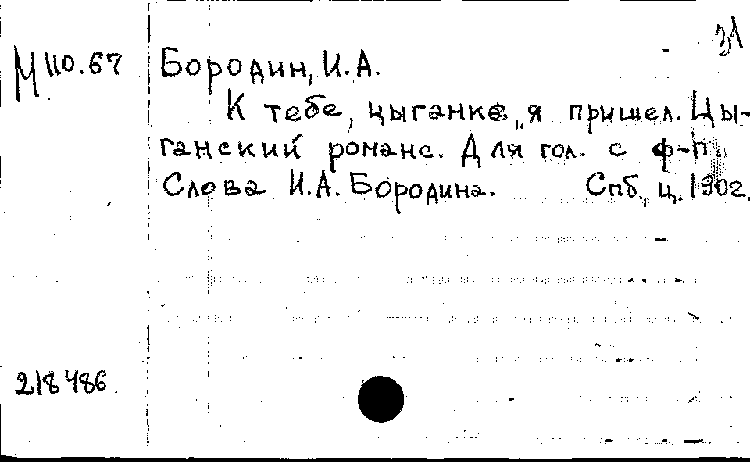 31
М 110.67 Бородин, И.А.
К тебе, цыганке, я пришел. Цы-
ганский романс. Для гол. с ф-п.
Слова И.А. Бородина. Спб., ц. 1902.
218486